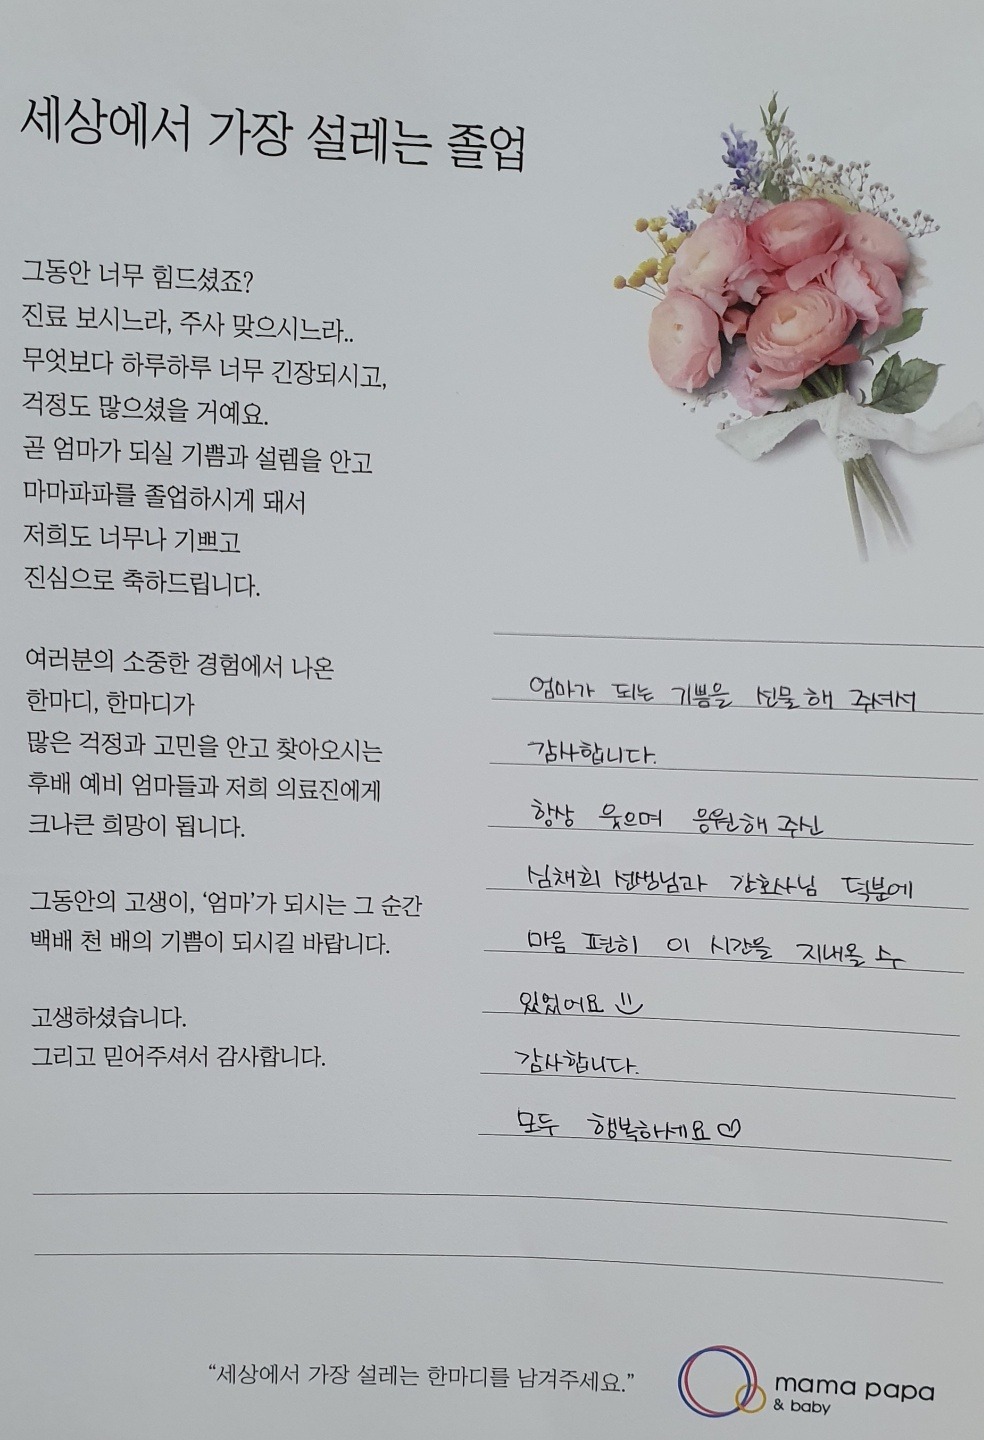 세상에서 가장 설레는 졸업
그동안 너무 힘드셨죠?
진료 보시느라, 주사 맞으시느라..
무엇보다 하루하루 너무 긴장되시고,
걱정도 많으셨을 거예요.
곧 엄마가 되실 기쁨과 설렘을 안고
마마파파를 졸업하시게 돼서
저희도 너무나 기쁘고
진심으로 축하드립니다.
여러분의 소중한 경험에서 나온
한마디, 한마디가
많은 걱정과 고민을 안고 찾아오시는
후배 예비 엄마들과 저희 의료진에게
크나큰 희망이 됩니다.
그동안의 고생이, ‘엄마’가 되시는 그 순간
백배 천 배의 기쁨이 되시길 바랍니다.
고생하셨습니다.
그리고 믿어주셔서 감사합니다.
엄마가 되는 기쁨을 선물해 주셔서
감사합니다.
항상 웃으며 응원해 주신
심채희 선생님과 간호사님 덕분에
마음 편히 이 시간을 지내올 수
있었어요
감사합니다.
모두 행복하세요♡
“세상에서 가장 설레는 한마디를 남겨주세요.”
mama papa
& baby